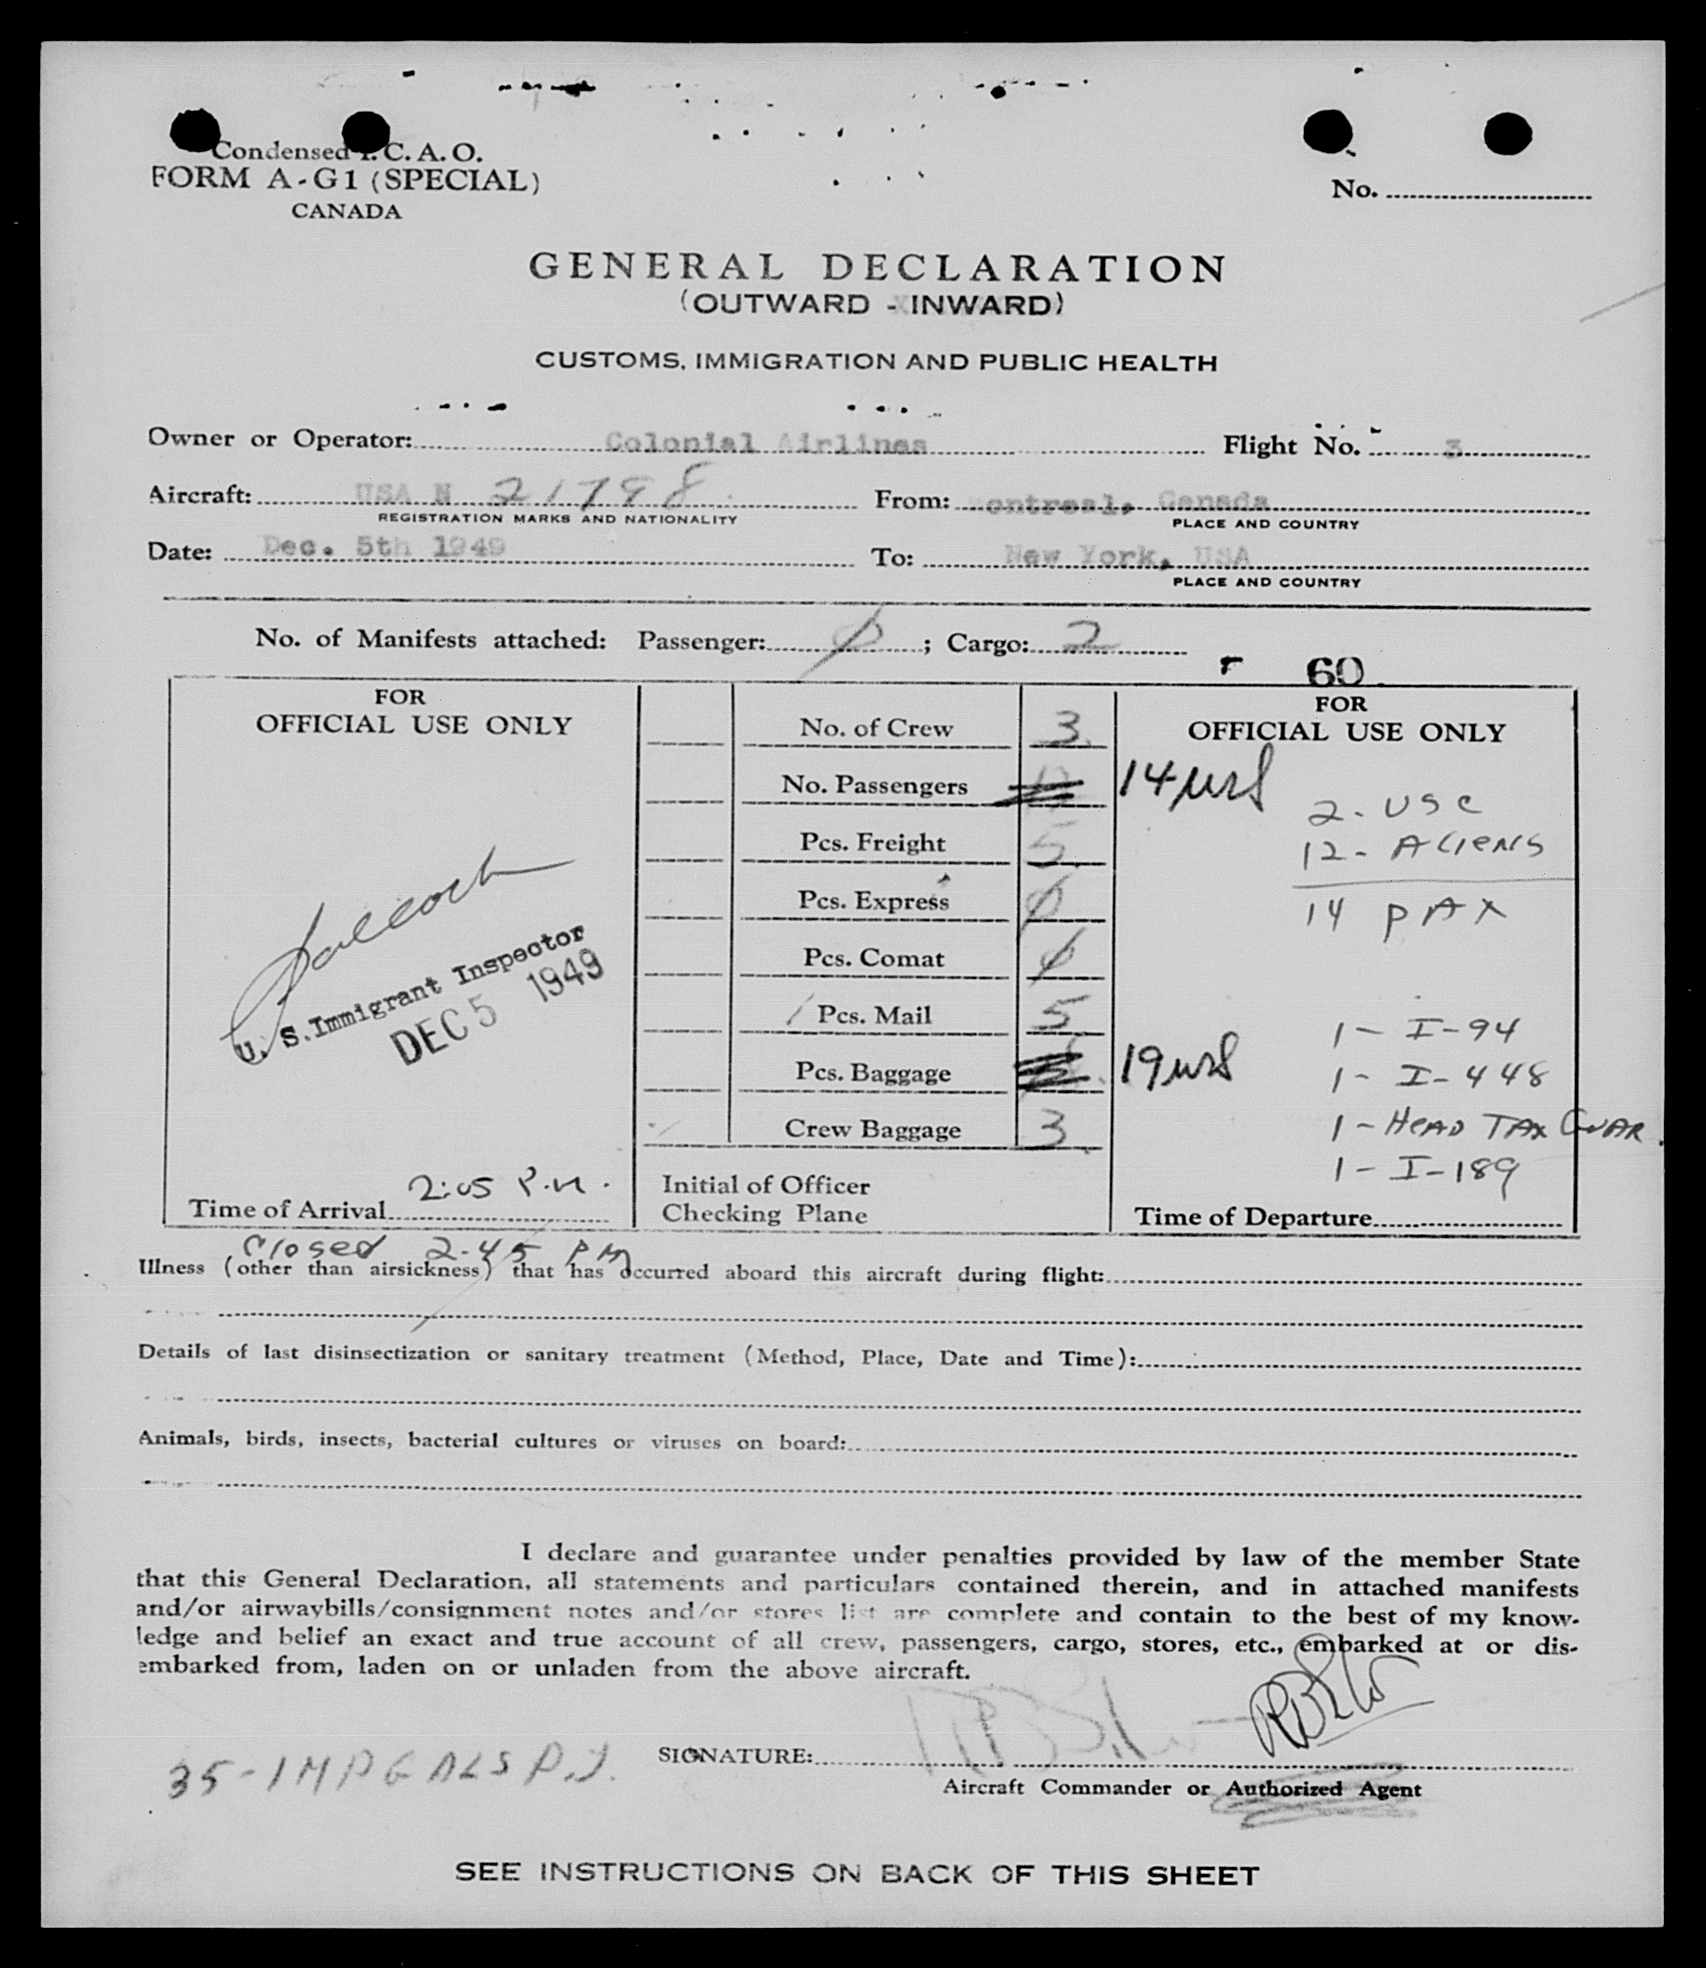 Condensed I. C. A. O.
FORM A-G1 (SPECIAL)
CANADA
No.
GENERAL DECLARATION
(OUTWARD - INWARD)
CUSTOMS, IMMIGRATION AND PUBLIC HEALTH
Owner or Operator: Colonial Airlines Flight No. 3
Aircraft: USA N 21798 From: ontreal, Canada
REGISTRATION MARKS AND NATIONALITY PLACE AND COUNTRY
Date: Dec. 5th 1949 To: New York, USA
PLACE AND COUNTRY
No. of Manifests attached: Passenger: ∅ ; Cargo: 2
60
FOR
OFFICIAL USE ONLY
U. S. Immigrant Inspector
DEC 5 1949
Time of Arrival 2:05 P.M.
No. of Crew 3
No. Passengers 14
Pcs. Freight 5
Pcs. Express ∅
Pcs. Comat ∅
/ Pcs. Mail 5
Pcs. Baggage 19
Crew Baggage 3
Initial of Officer
Checking Plane
FOR
OFFICIAL USE ONLY
2 - USC
12 - ALIENS
14 PAX
1 - I-94
1 - I-448
1 - HEAD TAX GUAR.
1 - I-189
Time of Departure
Closed 2-45 PM
Illness (other than airsickness) that has occurred aboard this aircraft during flight:
Details of last disinsectization or sanitary treatment (Method, Place, Date and Time):
Animals, birds, insects, bacterial cultures or viruses on board:
I declare and guarantee under penalties provided by law of the member State
that this General Declaration, all statements and particulars contained therein, and in attached manifests
and/or airwaybills/consignment notes and/or stores list are complete and contain to the best of my know-
ledge and belief an exact and true account of all crew, passengers, cargo, stores, etc., embarked at or dis-
embarked from, laden on or unladen from the above aircraft.
SIGNATURE:
Aircraft Commander or Authorized Agent
35-IMP GALS
SEE INSTRUCTIONS ON BACK OF THIS SHEET